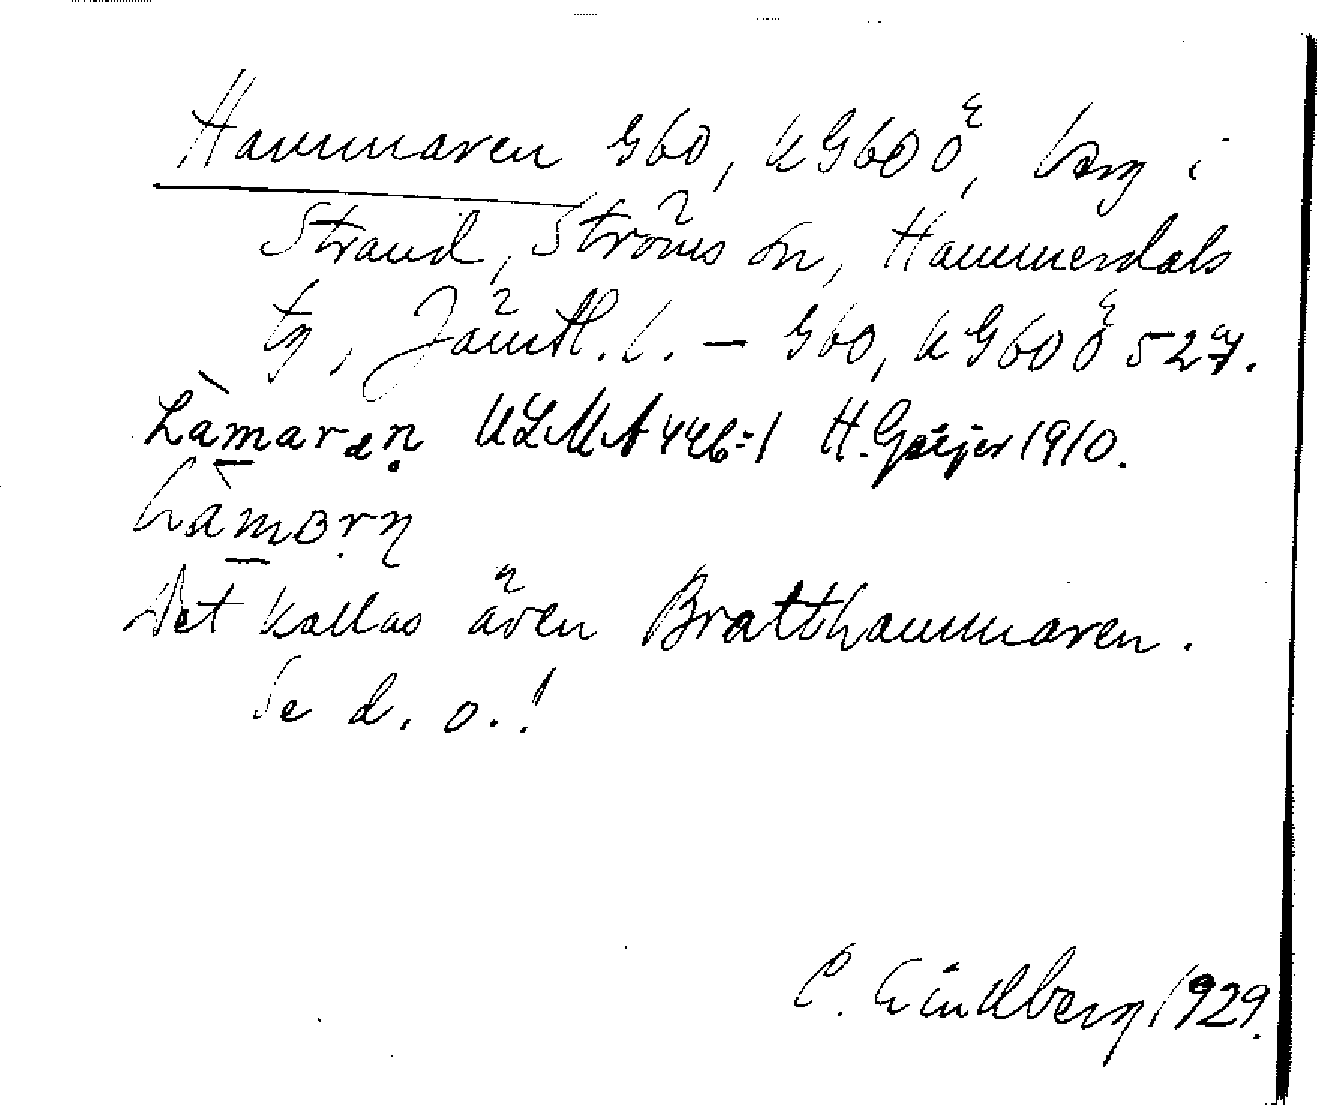 Hammaren Gbo, kGboÖ, berg i
Strand, Ströms sn, Hammerdals
tg, Jämtl. l. – Gbo, kGboÖ 527.
hàmaren ULMA 446:1 H. Geijer 1910.
hàmorn
Det kallas även Bratthammaren.
Se d. o.!
C. Lindberg 1929.